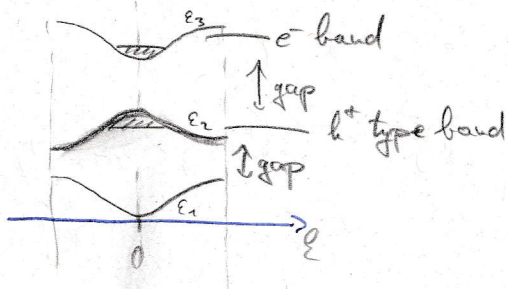 ε₃ e⁻ band
gap
ε₂ h⁺ type band
gap
ε₁
0